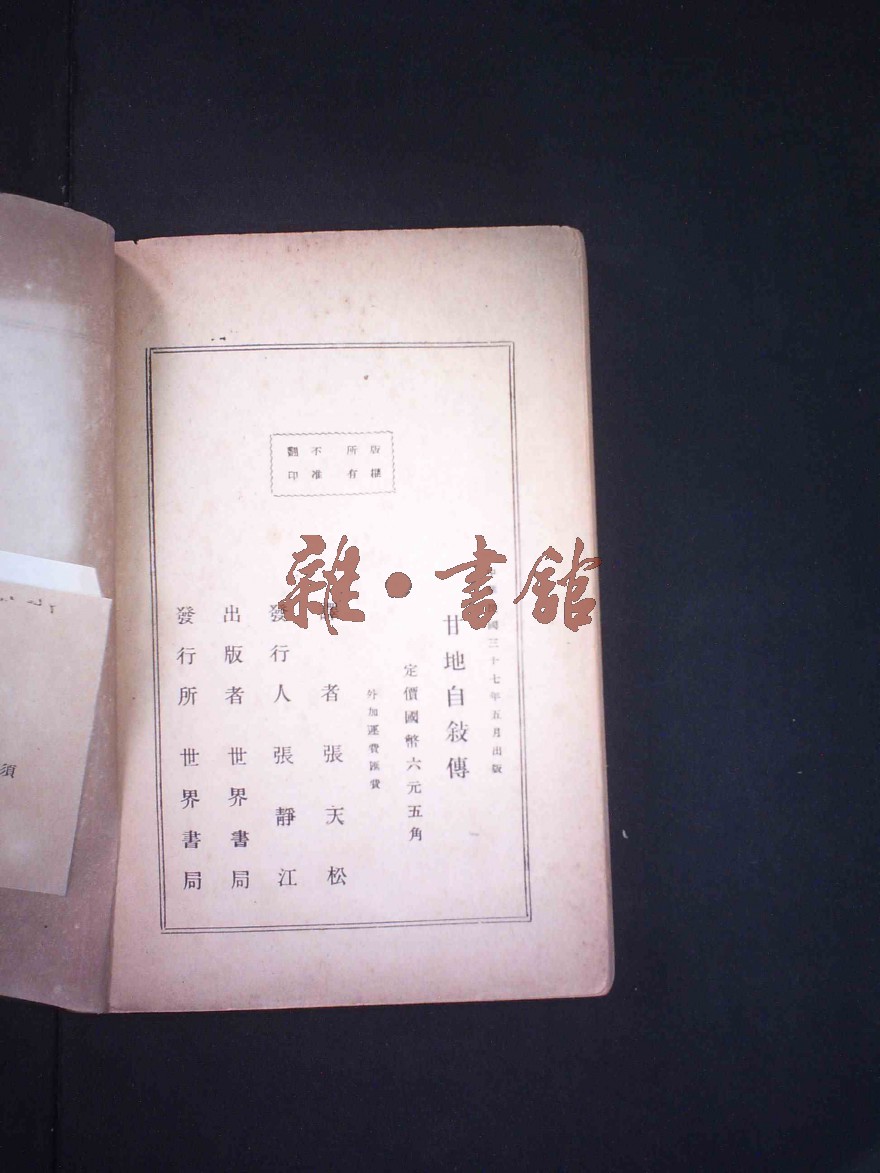 版權所有
不准翻印
國三十七年五月出版
甘地自敍傳
定價國幣六元五角
外加運費匯費
者 張天松
發行人 張靜江
出版者 世界書局
發行所 世界書局
雜·書館
須